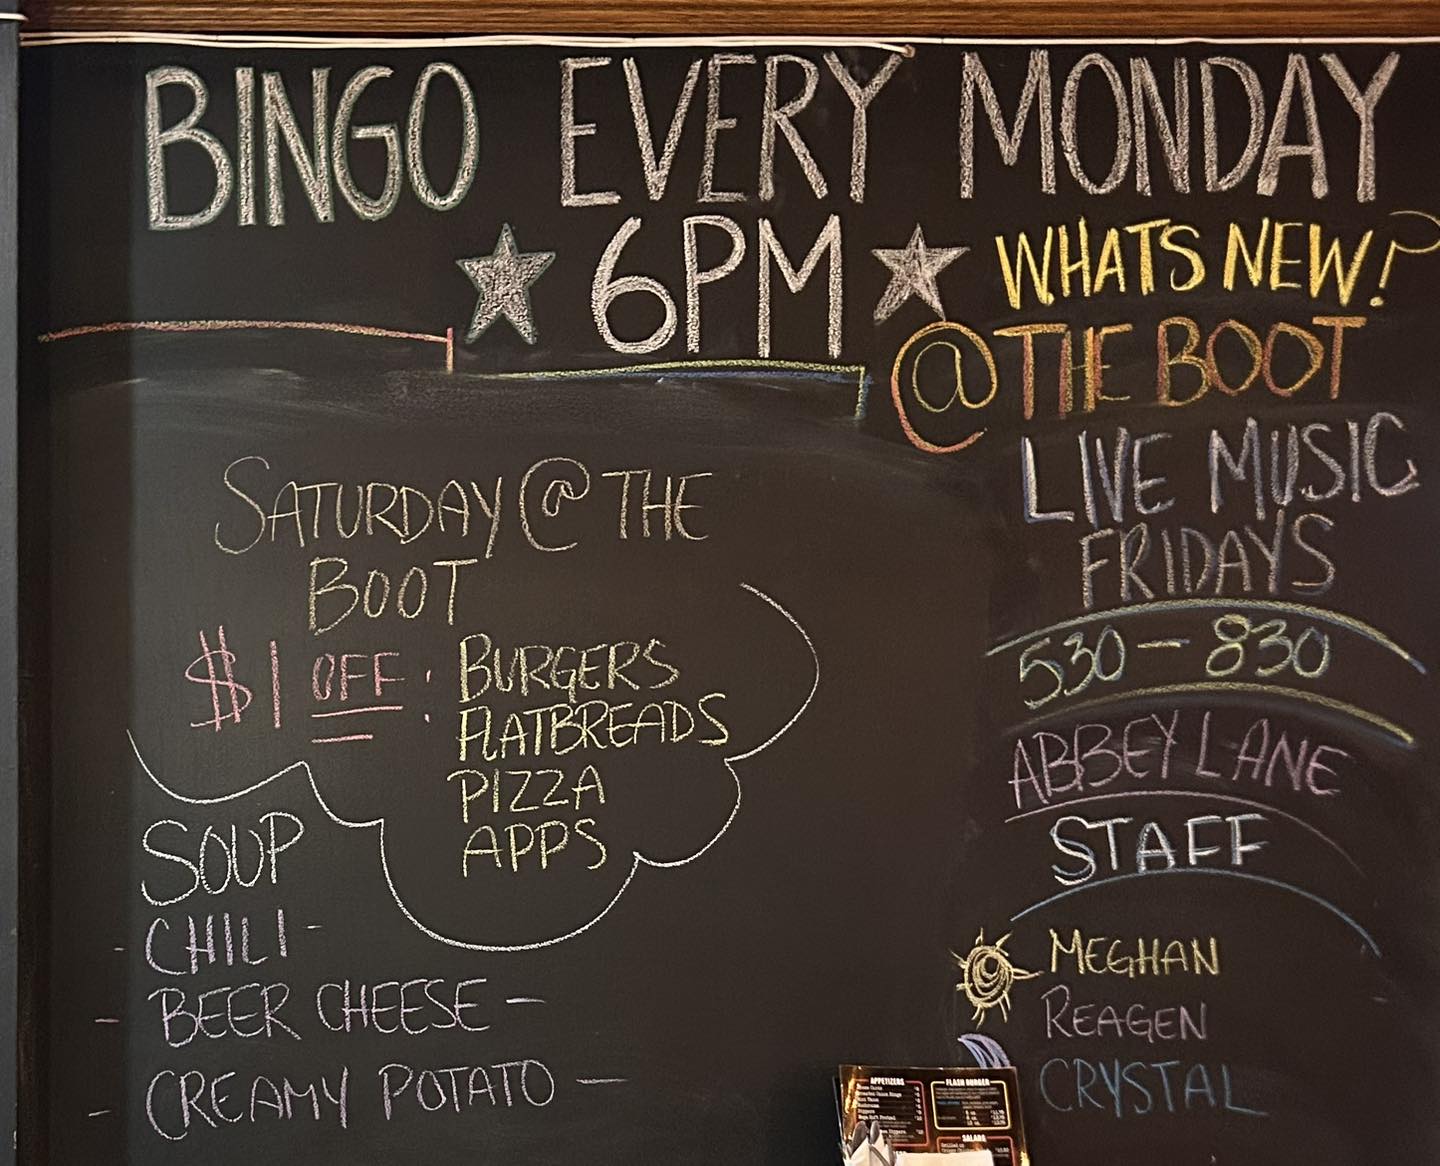 BINGO EVERY MONDAY
6PM
WHATS NEW?
@ THE BOOT
LIVE MUSIC
FRIDAYS
530 - 830
ABBEY LANE
STAFF
MEGHAN
REAGEN
CRYSTAL
SATURDAY @ THE
BOOT
$1 OFF: BURGERS
FLATBREADS
PIZZA
APPS
SOUP
- CHILI -
- BEER CHEESE -
- CREAMY POTATO -
APPETIZERS
FLASH BURGER
SALADS